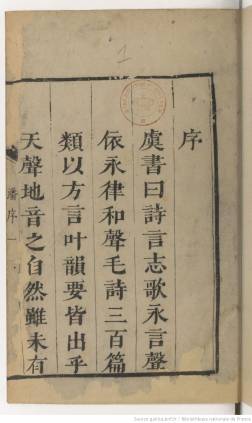 序
虞書曰詩言志歌永言聲
依永律和聲毛詩三百篇
類以方言叶韻要皆出乎
天聲地音之自然雖未有
潘序 一
1
Source gallica.bnf.fr / Bibliothèque nationale de France